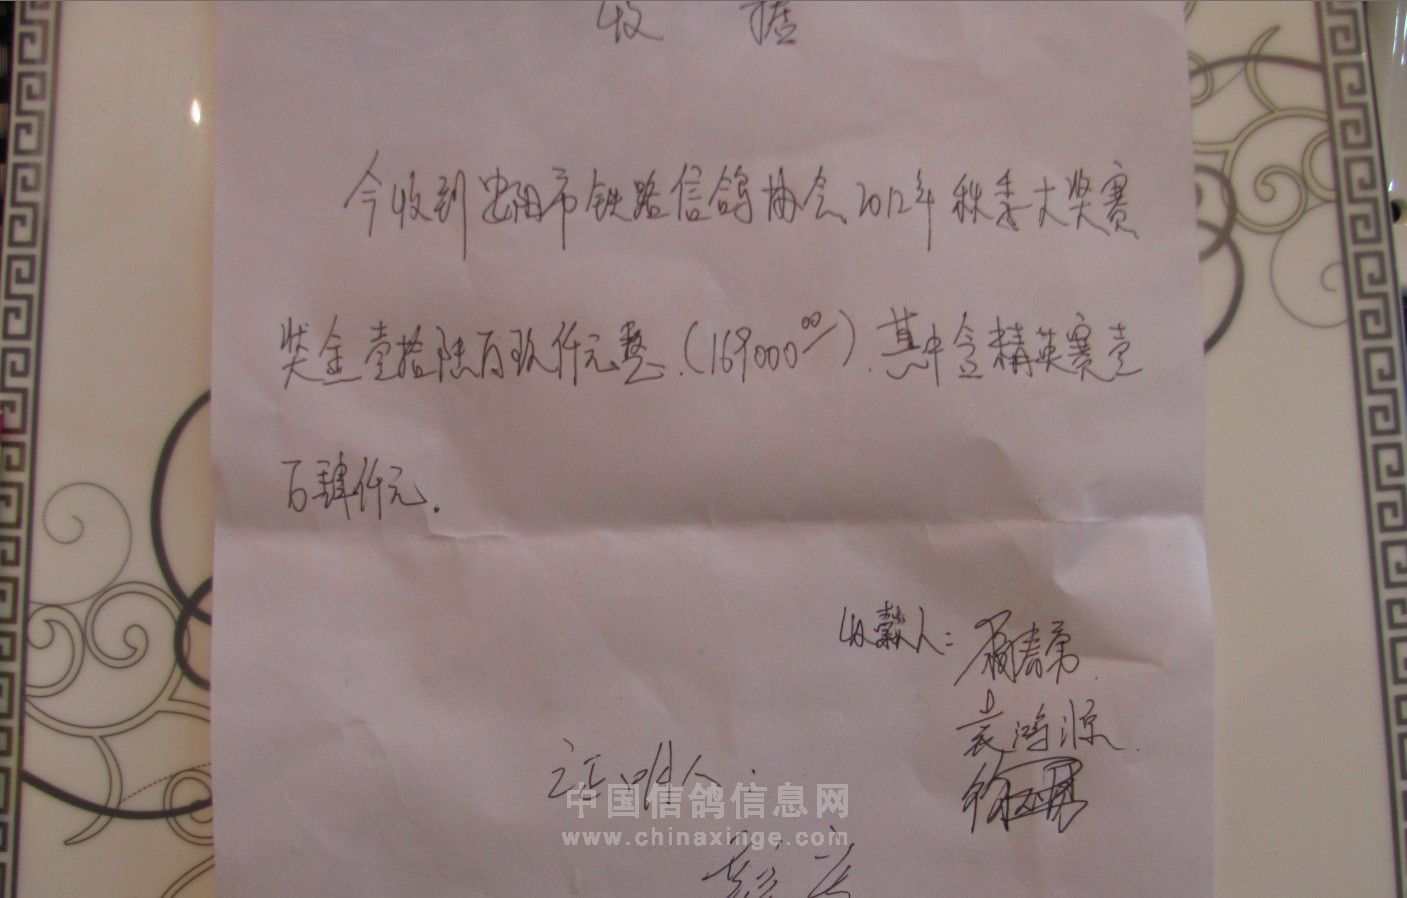 收 据
今收到安阳市铁路信鸽协会2012年秋季大奖赛
奖金壹拾陆万玖仟元整.(169000⁰⁰/).其中含精英赛壹
万肆仟元.
收款人:
袁鸿源
证明人:
中国信鸽信息网
www.chinaxinge.com